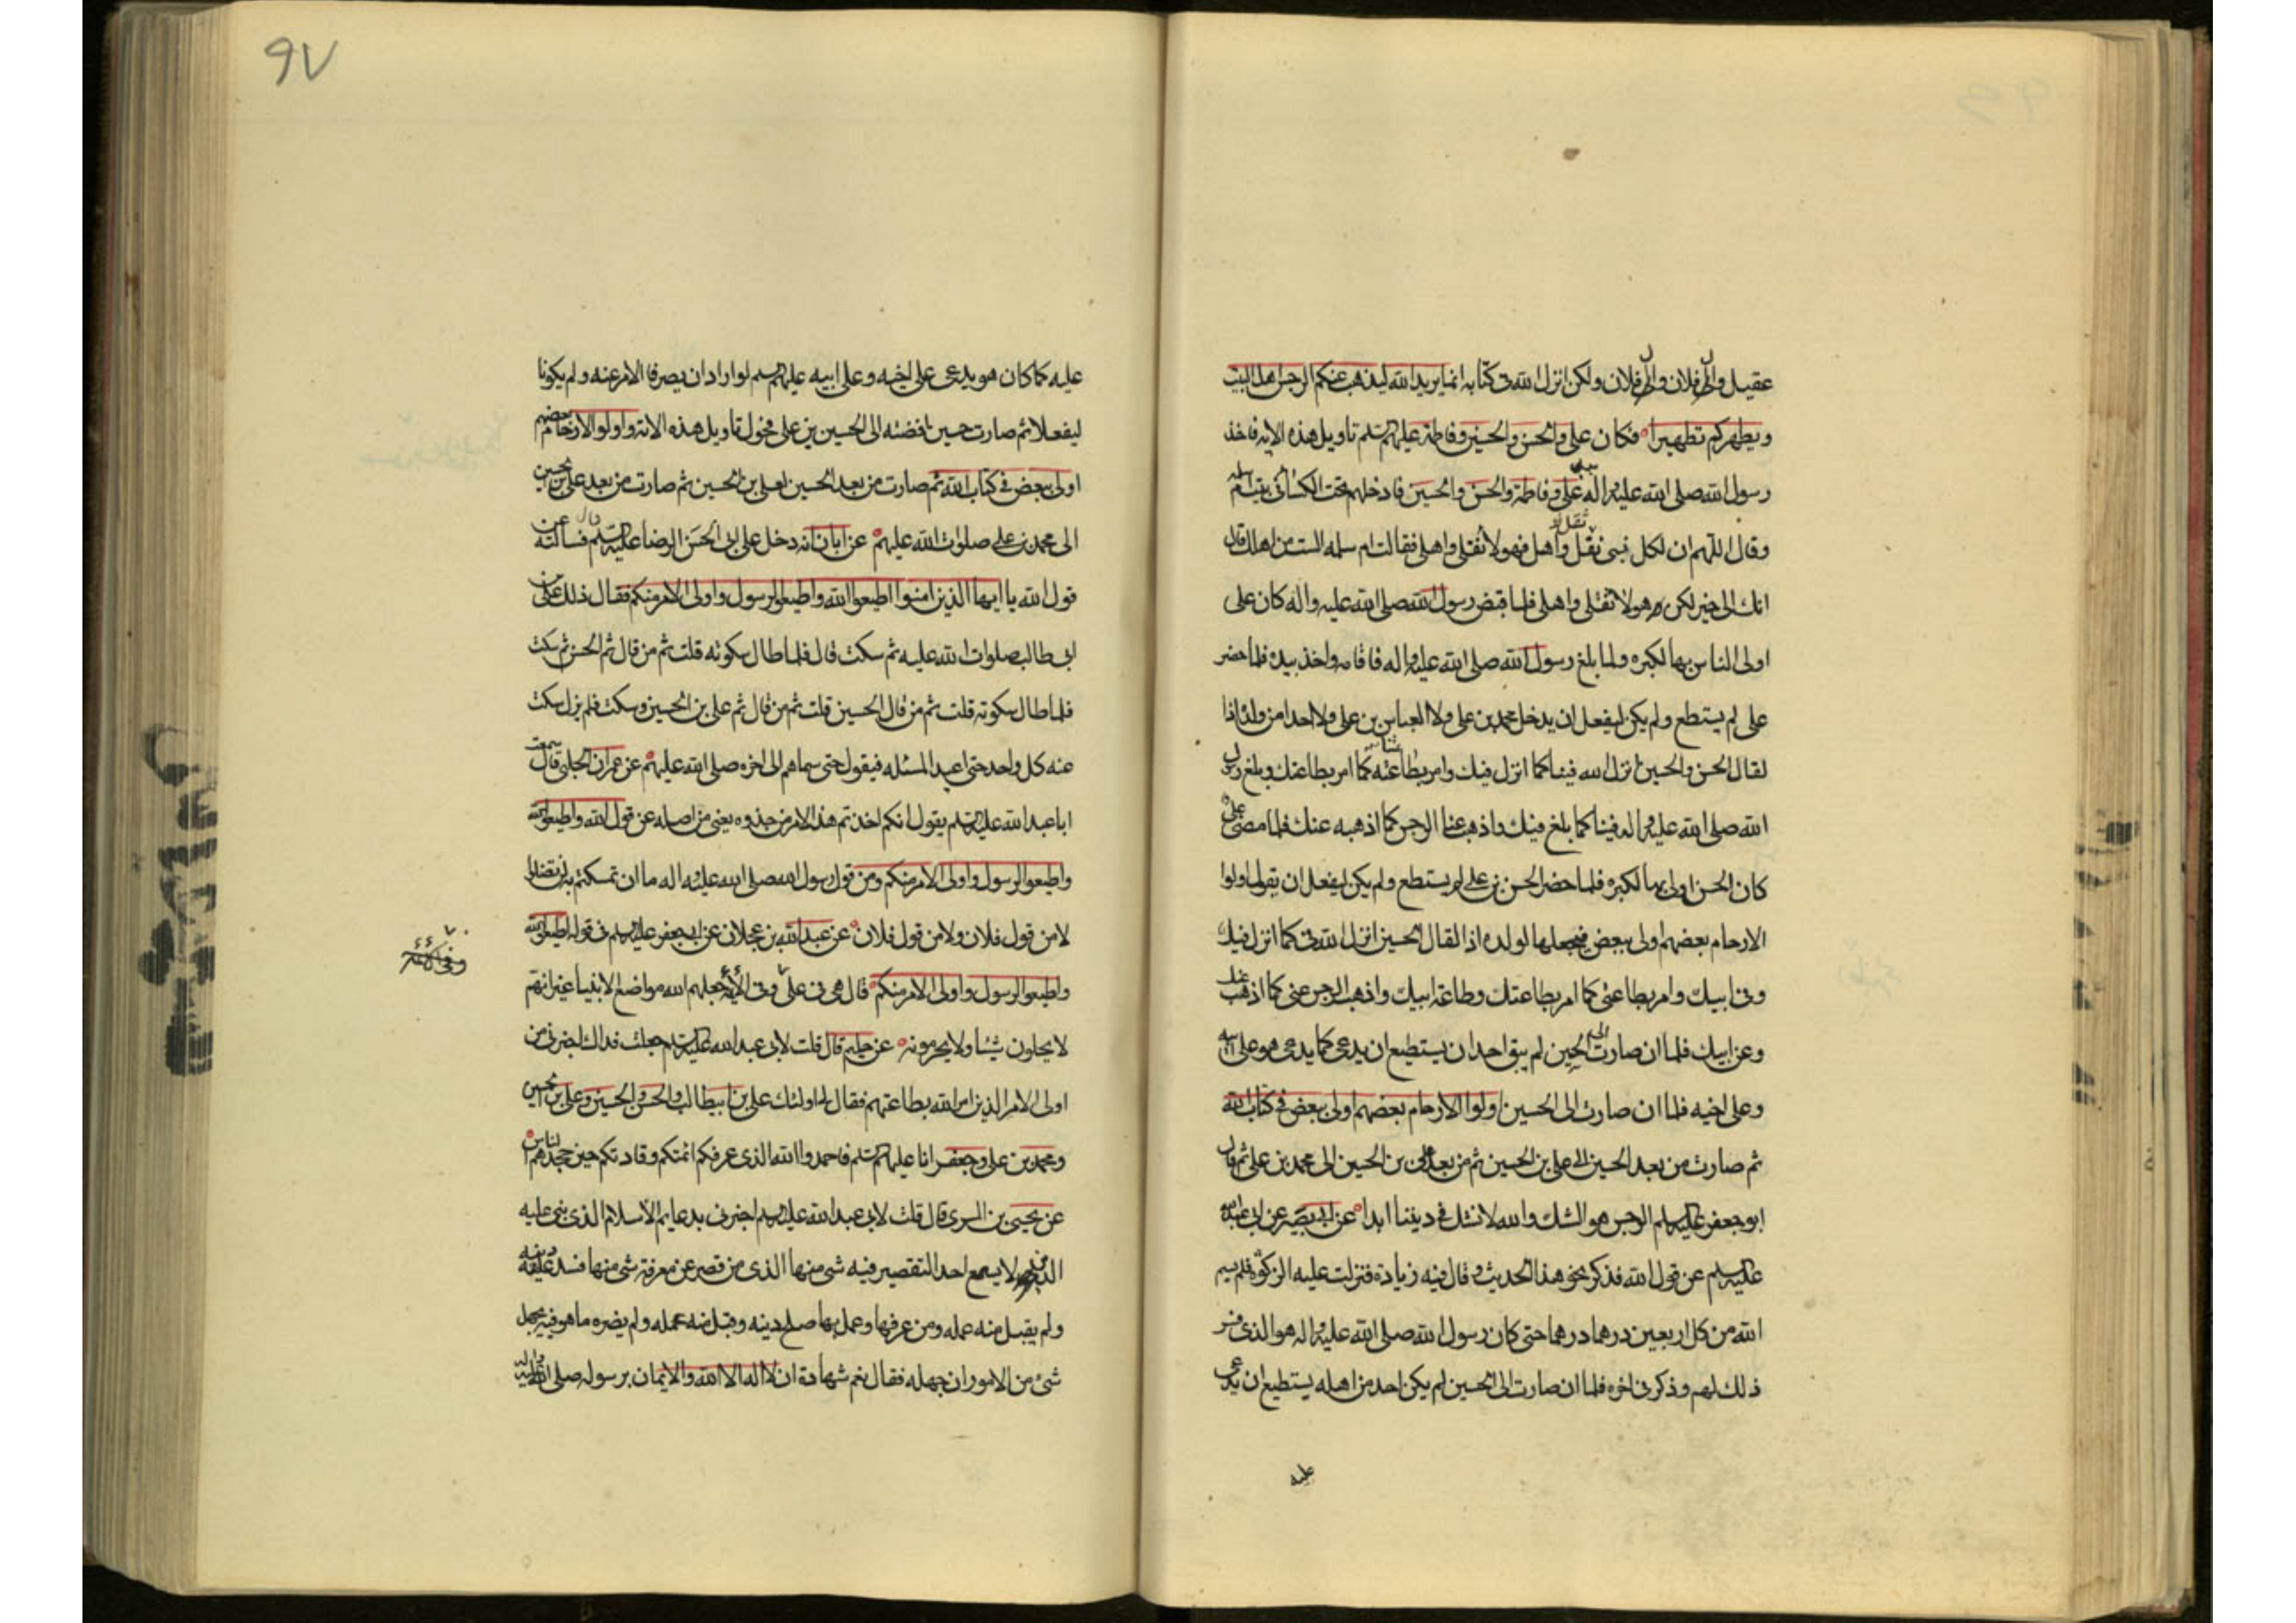 عقيل وال فلان وال فلان ولكن انزل الله في كتابه انما يريد الله ليذهب عنكم الرجس اهل البيت
ويطهركم تطهيرا فكان علي والحسن والحسين وفاطمة عليهم السلم تاويل هذه الاية فاخذ
رسول الله صلى الله عليه واله بيد علي وفاطمة والحسن والحسين فادخلهم تحت الكساء في بيت ام سلمه
وقال اللهم ان لكل نبي ثقل واهل فهولا ثقلي واهلي فقالت ام سلمه الست من اهلك قال
انك الى خير لكن هولا ثقلي واهلي فلما قبض رسول الله صلى الله عليه واله كان علي
اولى الناس بها لكبره ولما بلغ رسول الله صلى الله عليه واله فاقامه واخذ بيده فلما حضر
علي لم يستطع ولم يكن ليفعل ان يدخل محمد بن علي ولا العباس بن علي ولا احدا من ولده اذا
لقال الحسن والحسين انزل الله فينا كما انزل فيك وامر بطاعتنا كما امر بطاعتك وبلغ رسول
الله صلى الله عليه واله فينا كما بلغ فيك واذهب عنا الرجس كما اذهبه عنك فلما مضى علي
كان الحسن اولى بها لكبره فلما حضر الحسن بن علي لم يستطع ولم يكن ليفعل ان يقول اولوا
الارحام بعضهم اولى ببعض فيجعلها لولده اذا لقال الحسين انزل الله في كما انزل فيك
وفي ابيك وامر بطاعتي كما امر بطاعتك وطاعة ابيك واذهب الرجس عني كما اذهب عنك
وعن ابيك فلما ان صارت الى الحسين لم يبق احد ان يستطيع ان يدعي كما يدعي هو على ابيه
وعلى اخيه فلما ان صارت الى الحسين اولوا الارحام بعضهم اولى ببعض في كتاب الله
ثم صارت من بعد الحسين الى علي بن الحسين ثم من بعد علي بن الحسين الى محمد بن علي ثم قال
ابو جعفر عليه السلم الرجس هو الشك والله لا نشك في ديننا ابدا عن ابي بصير عن ابي عبد الله
عليه السلم عن قول الله فذكر نحو هذا الحديث وقال فيه زيادة فنزلت عليه الزكوة فلم يسم
الله من كل اربعين درهما درهما حتى كان رسول الله صلى الله عليه واله هو الذي فسر
ذلك لهم وذكر في اخره فلما ان صارت الى الحسين لم يكن احد من اهله يستطيع ان يدعي
عليه
٩٧
عليه كما كان هو يدعي على اخيه وعلى ابيه عليهم السلم لو ارادا ان يصرفا الامر عنه ولم يكونا
ليفعلا ثم صارت حين افضت الى الحسين بن علي فحول تاويل هذه الاية واولو الارحام بعضهم
اولى ببعض في كتاب الله ثم صارت من بعد الحسين لعلي بن الحسين ثم صارت من بعد علي بن الحسين
الى محمد بن علي صلوات الله عليهم عن ابان انه دخل على ابي الحسن الرضا عليه السلم قال فسالته عن
قول الله يا ايها الذين امنوا اطيعوا الله واطيعوا الرسول واولي الامر منكم فقال ذلك علي بن
ابي طالب صلوات الله عليه ثم سكت قال فلما طال سكوته قلت ثم من قال ثم الحسن ثم سكت
فلما طال سكوته قلت ثم من قال الحسين قلت ثم من قال ثم علي بن الحسين وسكت فلم يزل يسكت
عنه كل واحد حتى اعيد المسئله فيقول حتى سماهم الى اخره صلى الله عليهم عن عمران الحلبي قال سمعت
ابا عبد الله عليه السلم يقول انكم اخذتم هذا الامر من جذوه يعني من اصله عن قول الله واطيعوا الله
واطيعوا الرسول واولي الامر منكم ومن قول رسول الله صلى الله عليه واله ما ان تمسكتم به لن تضلوا
لا من قول فلان ولا من قول فلان عن عبد الله بن عجلان عن ابي جعفر عليه السلم في قوله اطيعوا الله
واطيعوا الرسول واولي الامر منكم قال هي في علي وفي الائمة جعلهم الله مواضع الانبيا غير انهم
وفي الائمة
لا يحلون شيئا ولا يحرمونه عن حكيم قال قلت لابي عبد الله عليه السلم جعلت فداك اخبرني من
اولى الامر الذين امر الله بطاعتهم فقال لي اولئك علي بن ابيطالب والحسن والحسين وعلي بن الحسين
ومحمد بن علي وجعفر انا عليهم السلم فاحمدوا الله الذي عرفكم ائمتكم وقادتكم حين جحدهم الناس
عن يحيى بن السري قال قلت لابي عبد الله عليه السلم اخبرني بدعايم الاسلام الذي بني عليه
الدين لا يسع احد التقصير فيه شي منها الذي من قصر عن معرفة شي منها فسد عليه دينه
ولم يقبل منه عمله ومن عرفها وعمل بها صلح دينه وقبل منه عمله ولم يضره ما هو فيه بجهل
شئ من الامور ان جهله فقال نعم شهادة ان لا اله الا الله والايمان برسوله صلى الله عليه واله